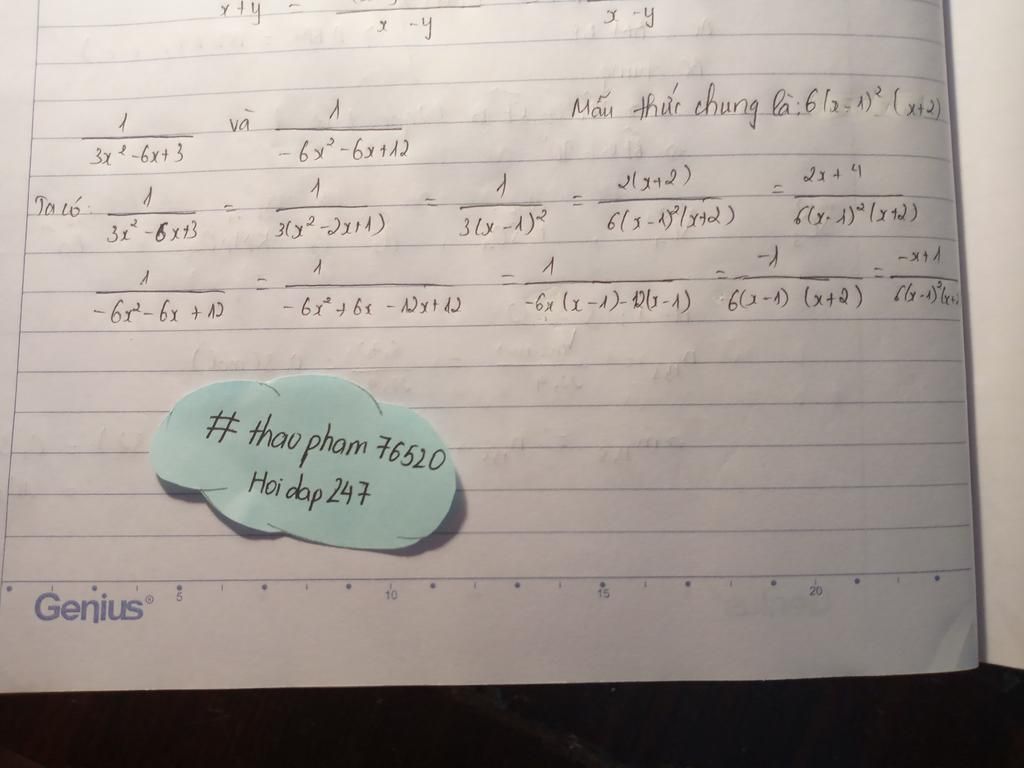 x+y = x-y x-y
1/(3x²-6x+3) và 1/(-6x²-6x+12) Mẫu thức chung là: 6(x-1)² (x+2)
Ta có: 1/(3x²-6x+3) = 1/(3(x²-2x+1)) = 1/(3(x-1)²) = 2(x+2)/(6(x-1)²(x+2)) = (2x+4)/(6(x-1)²(x+2))
1/(-6x²-6x+12) = 1/(-6x²+6x-12x+12) = 1/(-6x(x-1)-12(x-1)) = -1/(6(x-1)(x+2)) = (-x+1)/(6(x-1)²(x+2
# thaopham76520
Hoidap247
Genius®
5 10 15 20